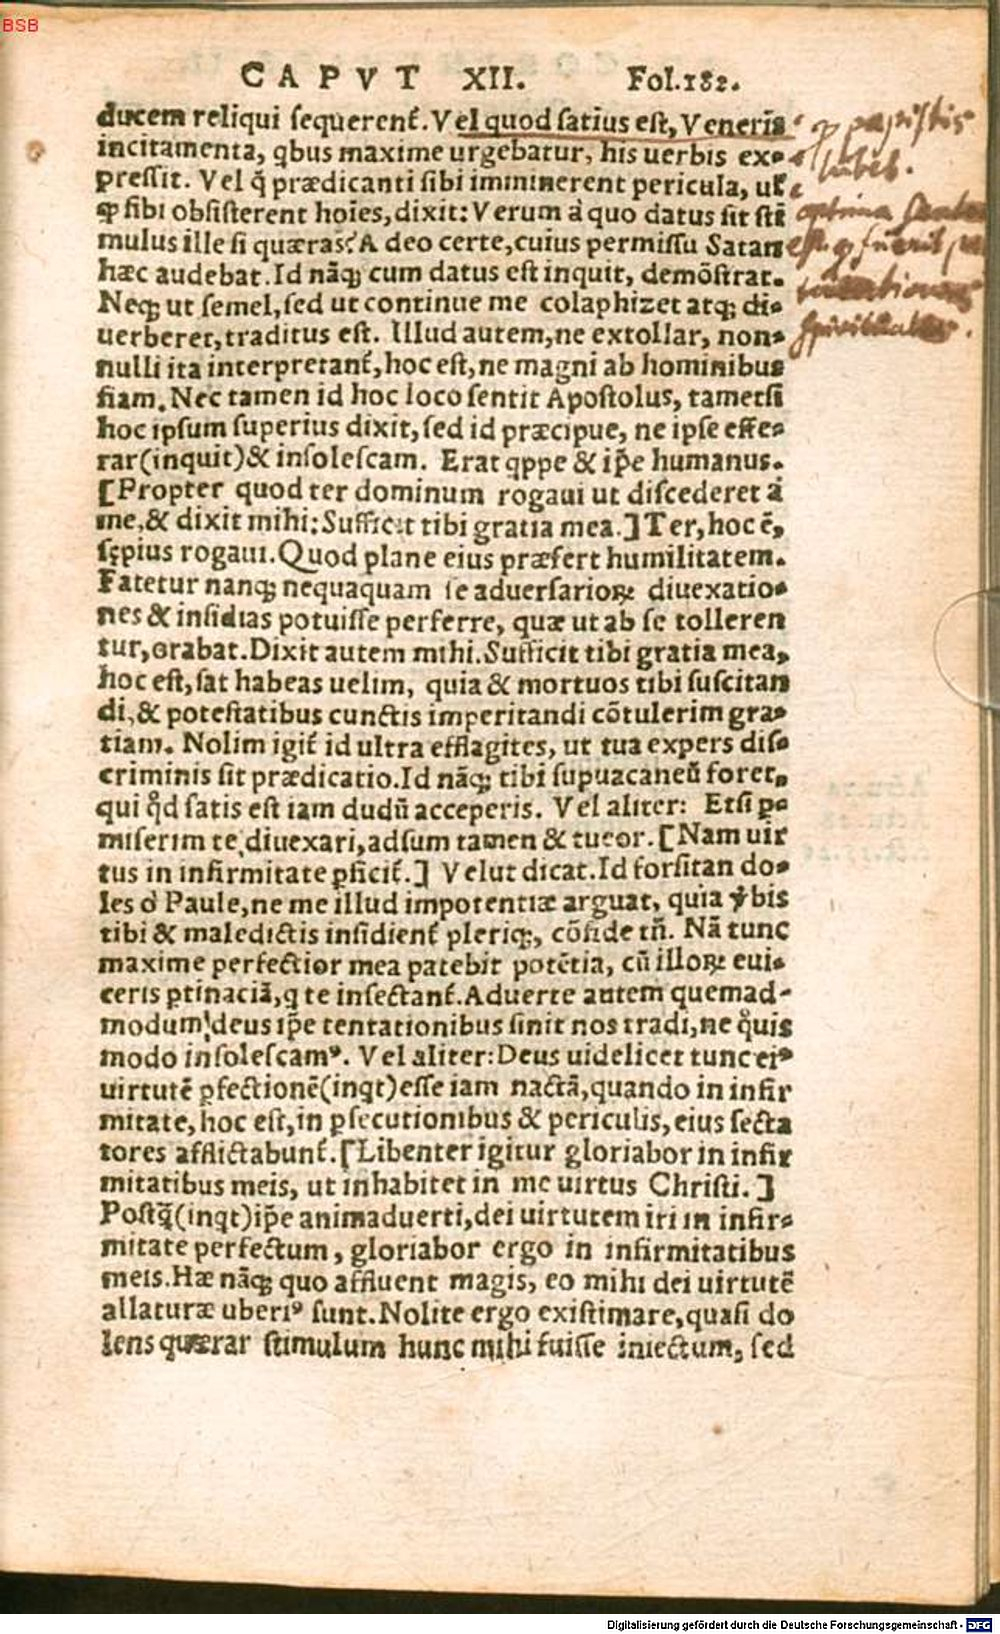 BSB
CAPVT XII. Fol.182.
ducem reliqui ſequerenť. Vel quod ſatius eſt, Veneris
incitamenta, qbus maxime urgebatur, his uerbis ex⸗
preſſit. Vel q̃ prædicanti ſibi imminerent pericula, ul
ꝙ ſibi obſiſterent hoĩes, dixit: Verum à quo datus ſit ſti
mulus ille ſi quæras? A deo certe, cuius permiſſu Satan
hæc audebat. Id nãq; cum datus eſt inquit, demõſtrat.
Neq; ut ſemel, ſed ut continue me colaphizet atq; di⸗
uerberet, traditus eſt. Illud autem, ne extollar, non⸗
nulli ita interpretanť, hoc eſt, ne magni ab hominibus
fiam. Nec tamen id hoc loco ſentit Apoſtolus, tametſi
hoc ipſum ſuperius dixit, ſed id præcipue, ne ipſe effe⸗
rar (inquit) & inſoleſcam. Erat qppe & ip̃e humanus.
[Propter quod ter dominum rogaui ut diſcederet à
me, & dixit mihi: Sufficit tibi gratia mea.] Ter, hoc ẽ,
ſępius rogaui. Quod plane eius præfert humilitatem.
Fatetur nanq; nequaquam ſe aduerſarioꝝ diuexatio⸗
nes & inſidias potuiſſe perferre, quæ ut ab ſe tolleren
tur, orabat. Dixit autem mihi. Sufficit tibi gratia mea,
hoc eſt, ſat habeas uelim, quia & mortuos tibi ſuſcitan
di, & poteſtatibus cunctis imperitandi cõtulerim gra⸗
tiam. Nolim igiť id ultra efflagites, ut tua expers diſ⸗
criminis ſit prædicatio. Id nãq; tibi ſupuacaneũ foret,
qui qd ſatis eſt iam dudũ acceperis. Vel aliter: Etſi ꝑ⸗
miſerim te diuexari, adſum tamen & tueor. [Nam uir
tus in infirmitate ꝑficiť.] Velut dicat. Id forſitan do⸗
les ò Paule, ne me illud impotentiæ arguat, quia v̕bis
tibi & maledictis inſidienť pleriq;, cõfide tñ. Nã tunc
maxime perfectior mea patebit potẽtia, cũ illoꝝ eui⸗
ceris ꝑtinaciã, q te inſectanť. Aduerte autem quemad-
modum deus ip̃e tentationibus ſinit nos tradi, ne quis
modo inſoleſcamꝰ. Vel aliter: Deus uidelicet tunc eiꝰ
uirtutẽ ꝑfectionẽ (inqt) eſſe iam nactã, quando in infir
mitate, hoc eſt, in ꝑſecutionibus & periculis, eius ſecta
tores afflictabunť. [Libenter igitur gloriabor in infir
mitatibus meis, ut inhabitet in me uirtus Chriſti.]
Poſtq̃ (inqt) ip̃e animaduerti, dei uirtutem iri in infir⸗
mitate perfectum, gloriabor ergo in infirmitatibus
meis. Hæ nãq; quo affluent magis, eo mihi dei uirtutẽ
allaturæ uberiꝰ ſunt. Nolite ergo exiſtimare, quaſi do
lens quærar ſtimulum hunc mihi fuiſſe iniectum, ſed
ꝙ papiſtis
lubet.
optima
eſt
Digitalisierung gefördert durch die Deutsche Forschungsgemeinschaft - DFG